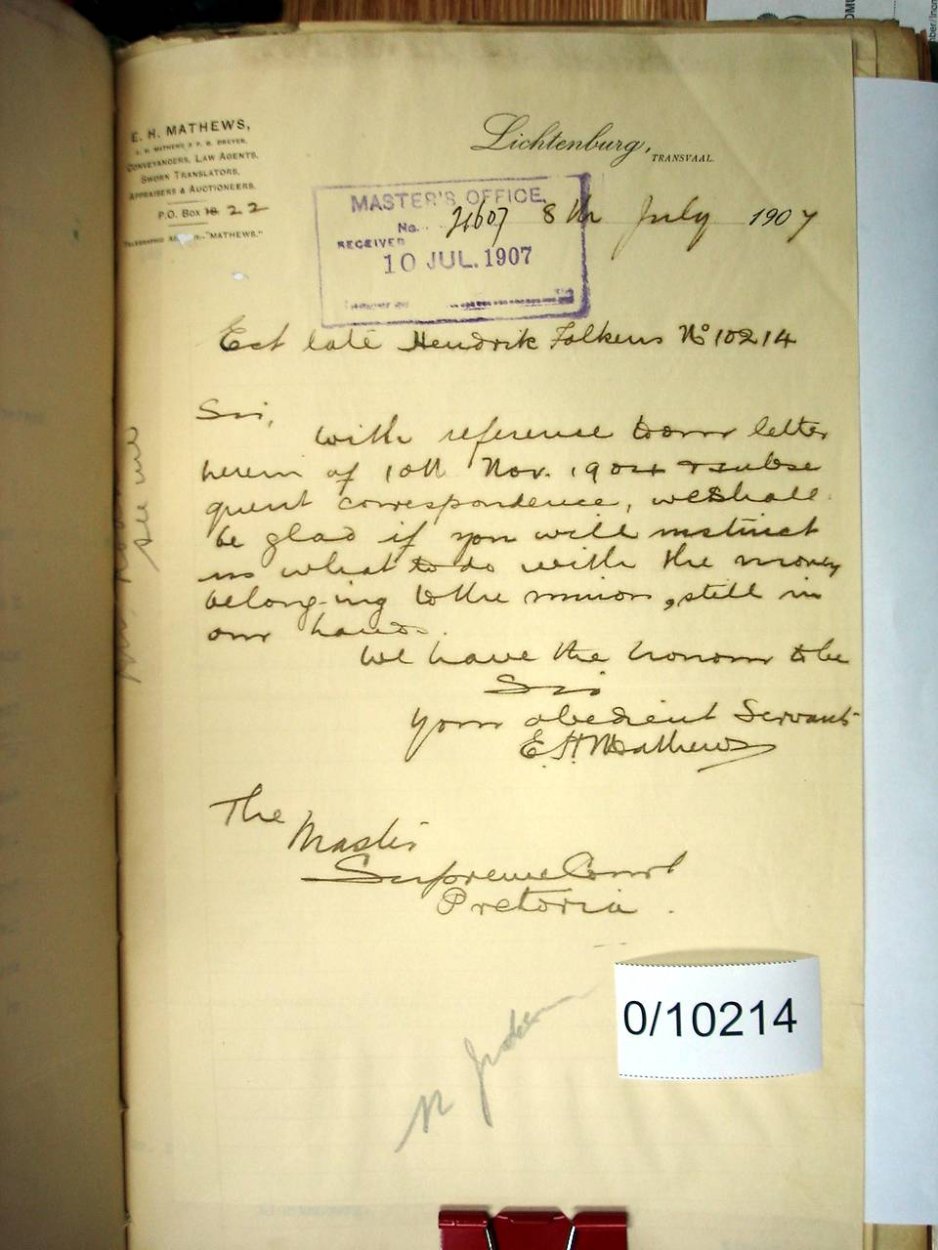 E. H. MATHEWS,
E. H. MATHEWS & P. B. DREYER,
CONVEYANCERS, LAW AGENTS,
SWORN TRANSLATORS,
APPRAISERS & AUCTIONEERS.
P.O. Box 18. 22
"MATHEWS."
Lichtenburg,
TRANSVAAL.
MASTER'S OFFICE.
No. 21607
RECEIVED
10 JUL. 1907
8th July 1907
Est late Hendrik Folkens No 10214
Sir,
With reference to our letter
herein of 10th Nov. 1904 & subse
quent correspondence, we shall
be glad if you will instruct
us what to do with the money
belong-ing to the minor, still in
our hands.
We have the honour to be
Sir
Your obedient Servants
E. H. Mathews
The
Master
Supreme Court
Pretoria.
see me
0/10214